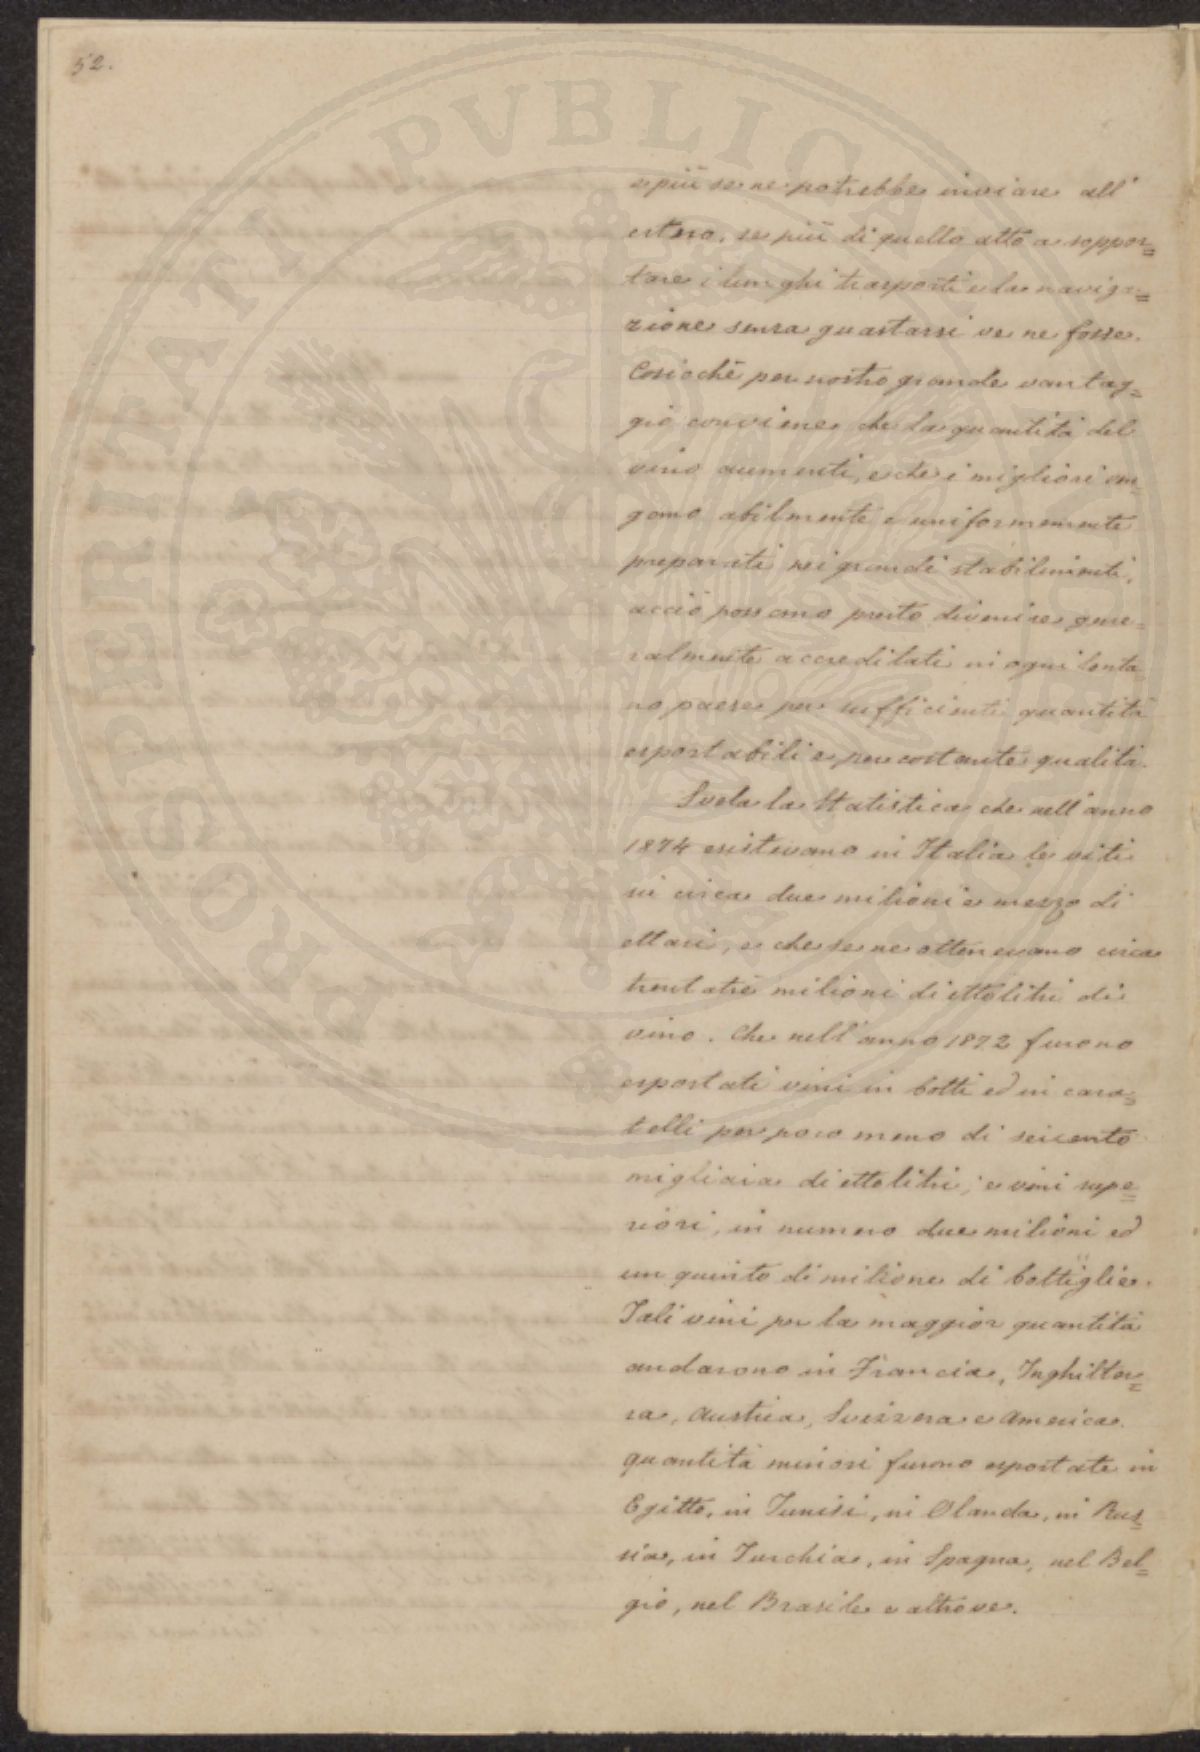 52.
PROSPERITATI PVBLICAE
e più se ne potrebbe inviare all'
estero, se più di quello atto a soppor=
tare i lunghi trasporti e la naviga=
zione senza guastarsi ve ne fosse.
Cosicchè per nostro grande vantag=
gio conviene che la quantità del
vino aumenti, e che i migliori ven=
gano abilmente e uniformemente
preparati nei grandi stabilimenti,
acciò possano presto divenire gene=
ralmente accreditati in ogni lonta
no paese per sufficienti quantità
esportabili e per costante qualità.
Svela la Statistica che nell'anno
1874 esistevano in Italia le viti
in circa due milioni e mezzo di
ettari, e che se ne ottenevano circa
trentatrè milioni di ettolitri di
vino. Che nell'anno 1872 furono
esportati vini in botti ed in cara=
telli per poco meno di seicento
migliaia di ettolitri; e vini supe=
riori, in numero due milioni ed
un quinto di milione di bottiglie.
Tali vini per la maggior quantità
andarono in Francia, Inghilter=
ra, Austria, Svizzera e America.
quantità minori furono esportate in
Egitto, in Tunisi, in Olanda, in Rus=
sia, in Turchia, in Spagna, nel Bel=
gio, nel Brasile e altrove.